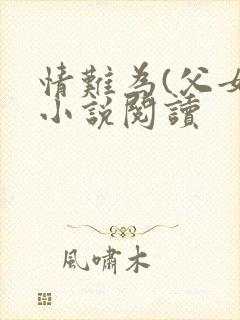 情難為(父女
小說閱讀
風嘯木